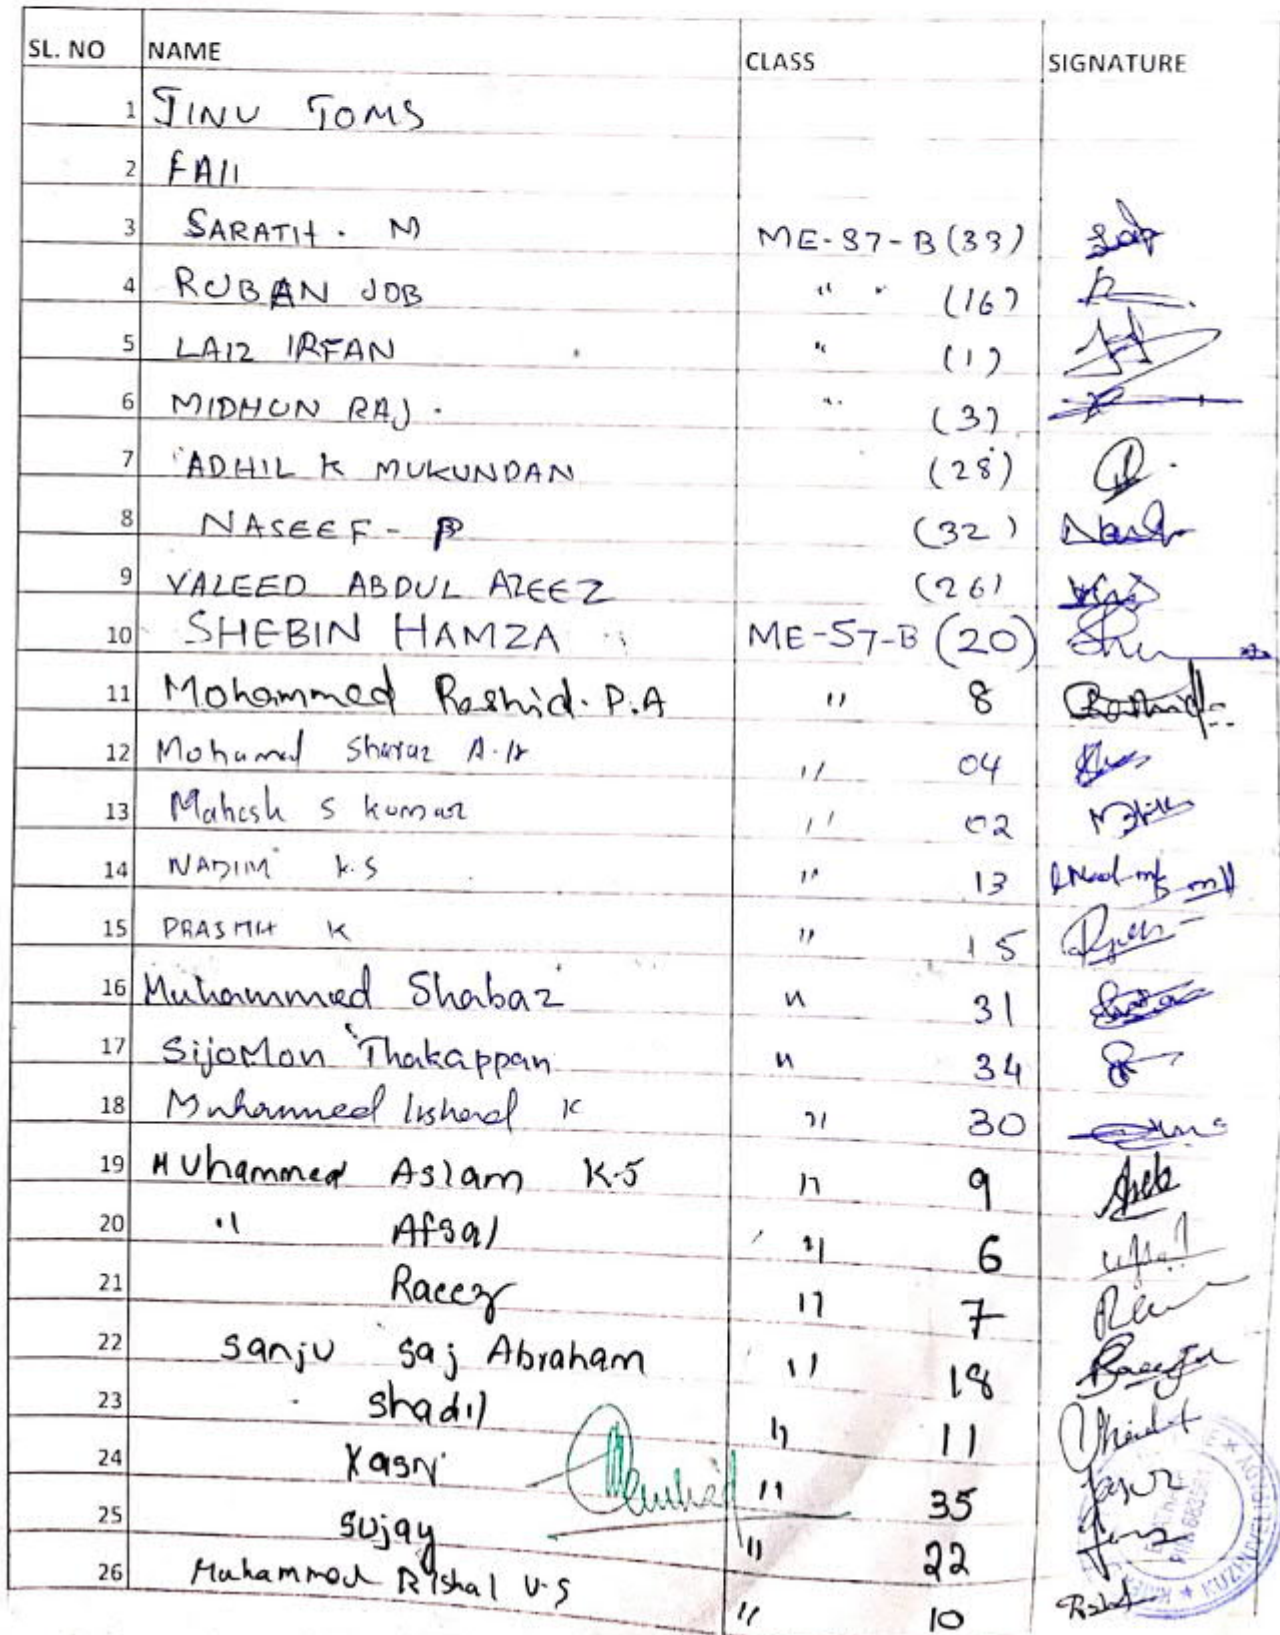 SL. NO NAME CLASS SIGNATURE
1 JINU TOMS
2 FAII
3 SARATH. M ME-S7-B (33)
4 RUBAN JOB " " (16)
5 LAIZ IRFAN " (1)
6 MIDHUN RAJ. " (3)
7 ADHIL K MUKUNDAN (28)
8 NASEEF - P (32)
9 VALEED ABDUL AZEEZ (26)
10 SHEBIN HAMZA ME-S7-B (20)
11 Mohammed Rashid. P.A " 8
12 Mohamed Sharaz A. " 04
13 Mahesh S Kumar " 02
14 NADIM K.S " 13
15 K " 15
16 Muhammed Shabaz " 31
17 SijoMon Thakappan " 34
18 Muhammed Irshad K " 30
19 Muhammed Aslam K.S " 9
20 " Afsal " 6
21 Raeez " 7
22 Sanju Saj Abraham " 18
23 Shadil " 11
24 " 35
25 Sujay " 22
26 Muhammed Rishal V.S " 10